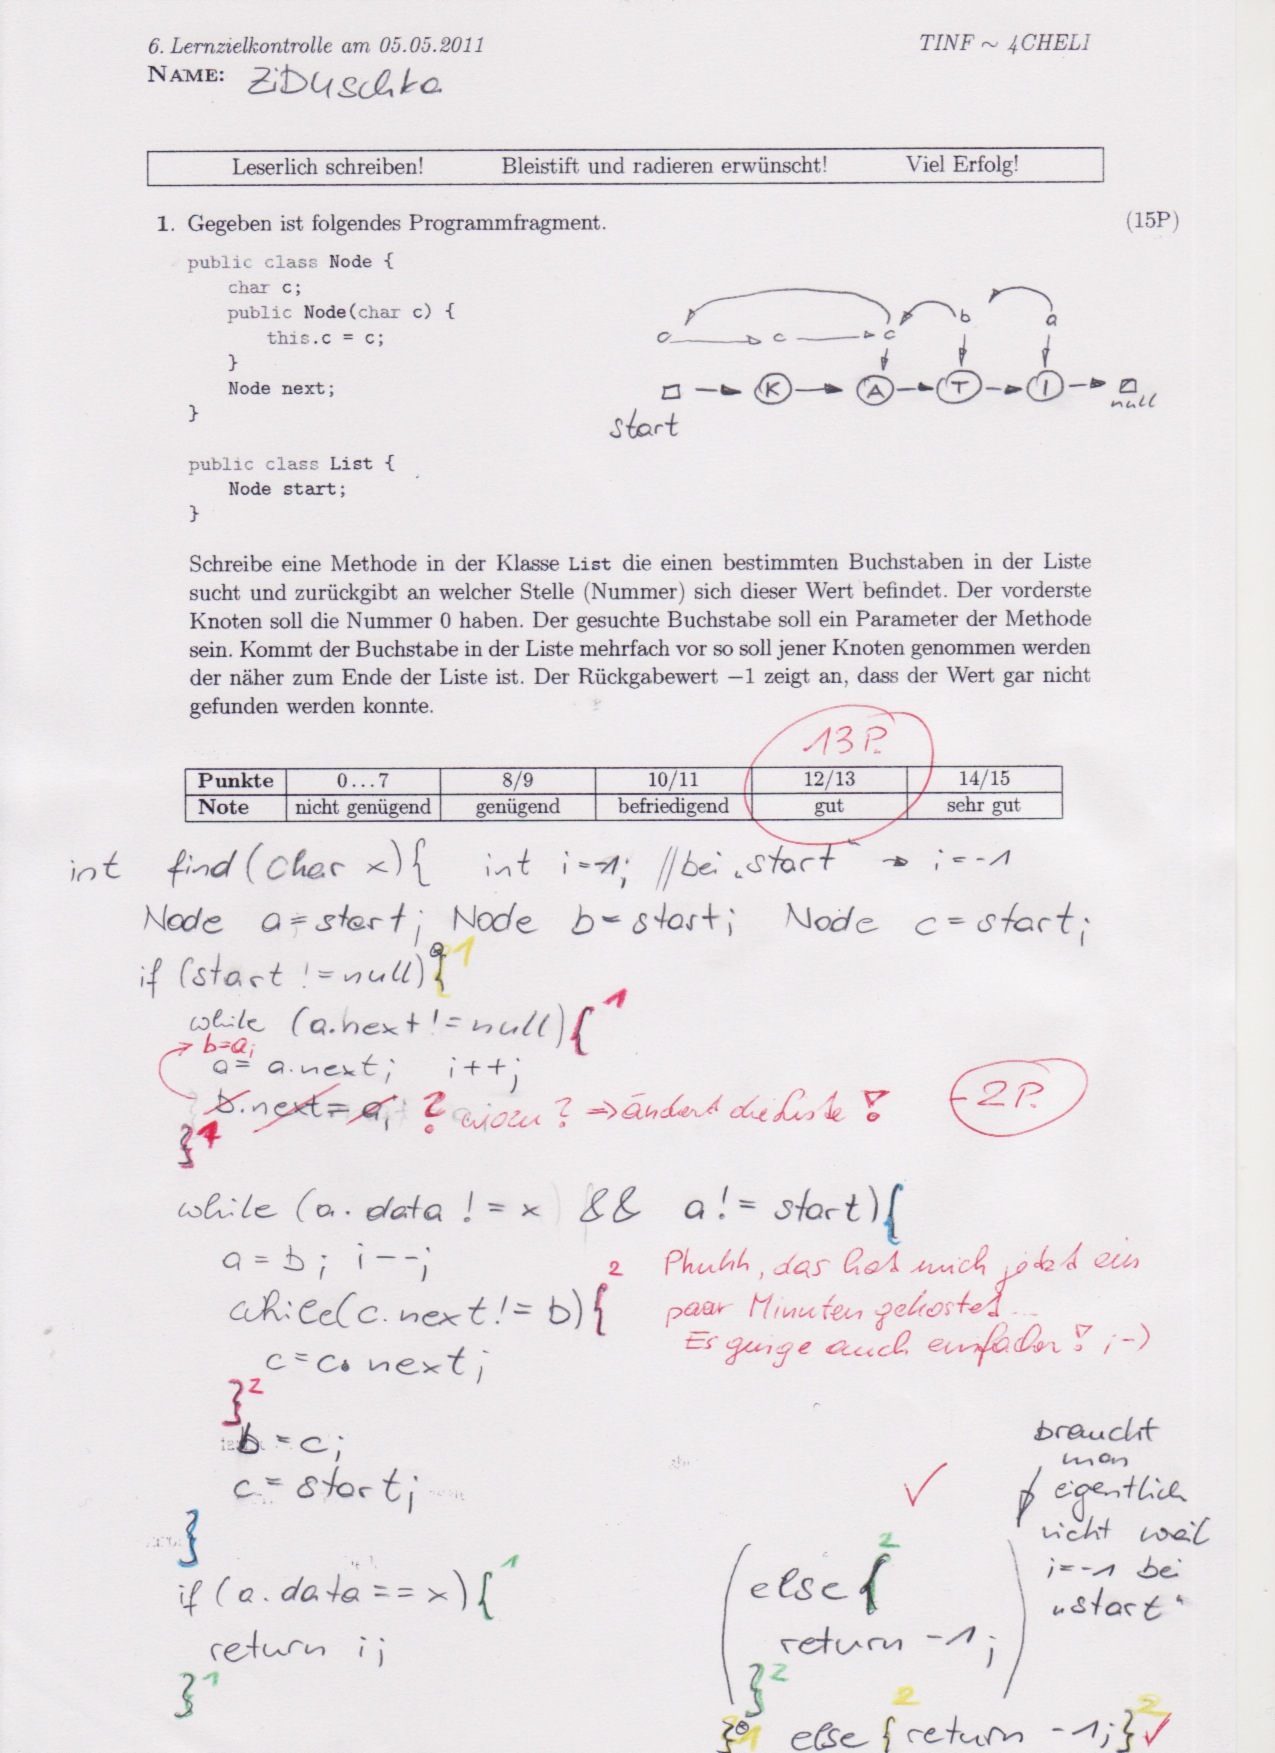 6. Lernzielkontrolle am 05.05.2011 TINF ~ 4CHELI
NAME: ZiDuschka
Leserlich schreiben! Bleistift und radieren erwünscht! Viel Erfolg!
1. Gegeben ist folgendes Programmfragment. (15P)
public class Node {
char c;
public Node(char c) {
this.c = c;
}
Node next;
}
c c c b a
K A T I
start null
public class List {
Node start;
}
Schreibe eine Methode in der Klasse List die einen bestimmten Buchstaben in der Liste
sucht und zurückgibt an welcher Stelle (Nummer) sich dieser Wert befindet. Der vorderste
Knoten soll die Nummer 0 haben. Der gesuchte Buchstabe soll ein Parameter der Methode
sein. Kommt der Buchstabe in der Liste mehrfach vor so soll jener Knoten genommen werden
der näher zum Ende der Liste ist. Der Rückgabewert −1 zeigt an, dass der Wert gar nicht
gefunden werden konnte.
13P.
Punkte 0...7 8/9 10/11 12/13 14/15
Note nicht genügend genügend befriedigend gut sehr gut
int find(char x){ int i=-1; //bei „start“ → i=-1
Node a=start; Node b=start; Node c=start;
if (start != null){ 1
while (a.next != null){ 1
b=a;
a= a.next; i++;
b.next= a; ? wozu? ⇒ ändert die Liste!
-2P.
} 1
while (a.data != x && a != start){
a=b; i--;
while(c.next != b){ 2
c=c.next;
} 2
Phuhh, das hat mich jetzt ein
paar Minuten gekostet...
Es ginge auch einfacher! ;-)
b=c;
c=start;
}
if (a.data == x){ 1
return i;
} 1
(else{ 2
return -1;
} 2 )
braucht
man
eigentlich
nicht weil
i=-1 bei
„start“
} 1 else { 2 return -1;} 2